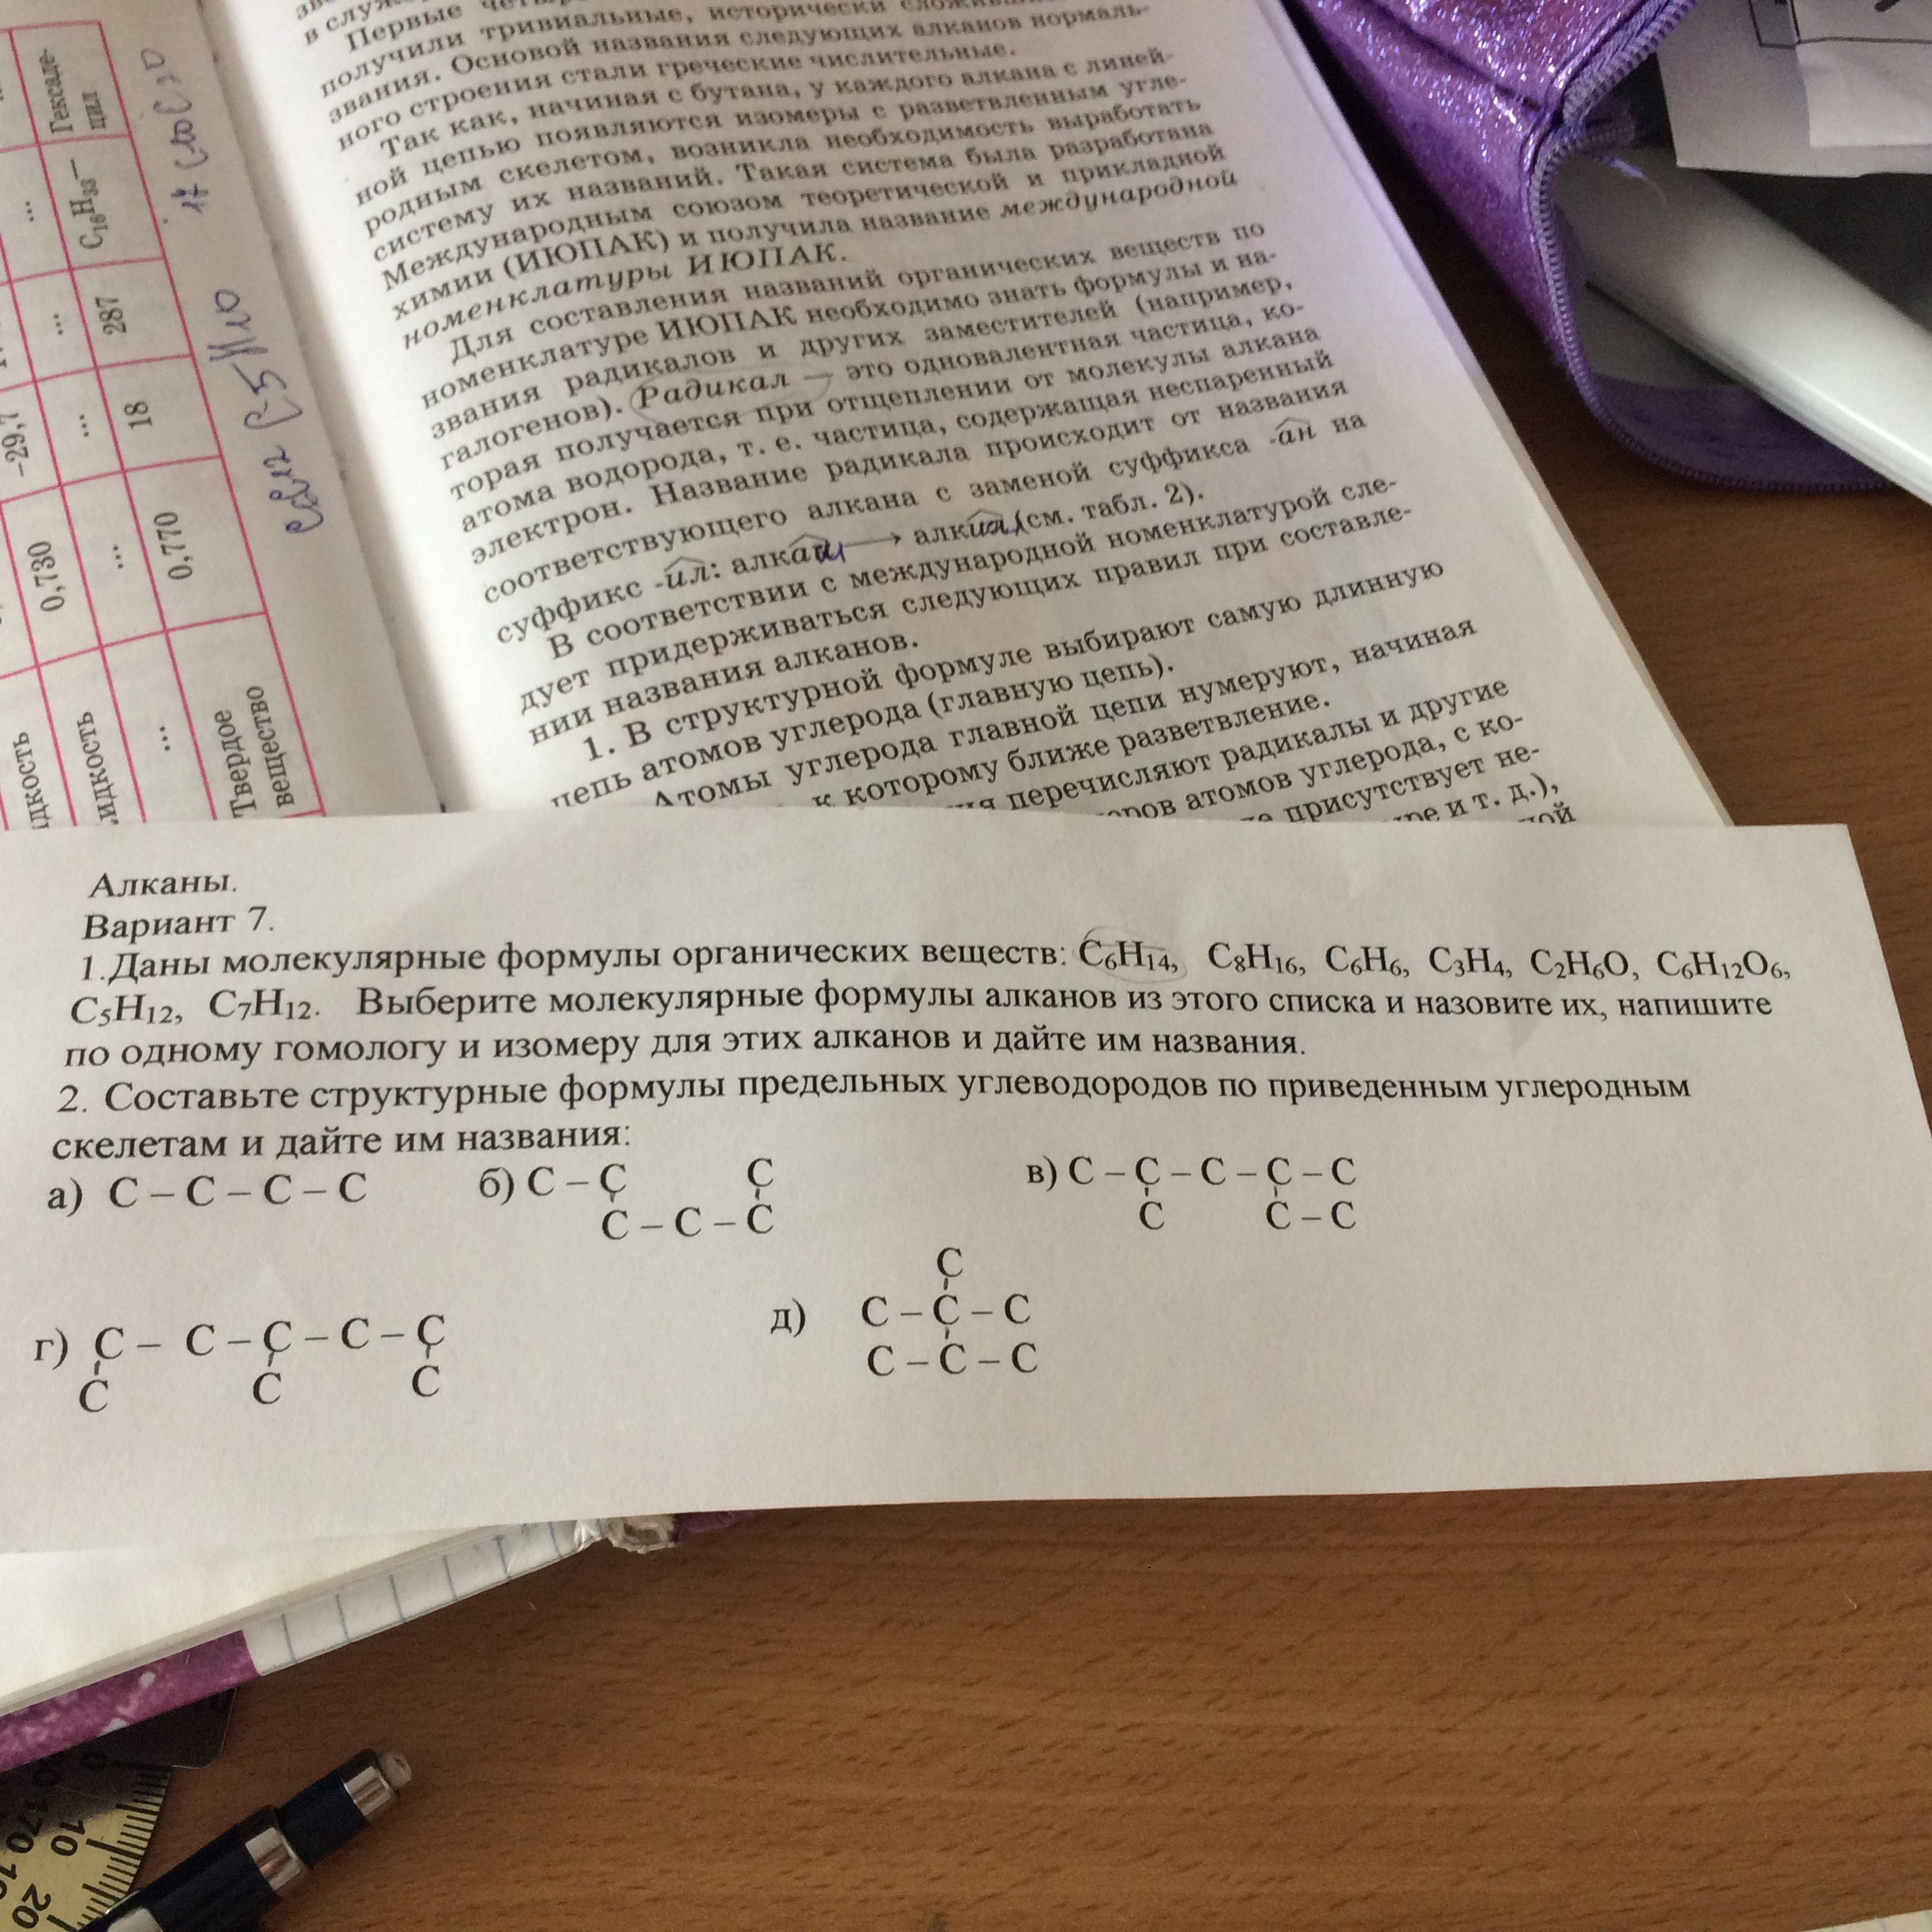 Первые
получили тривиальные, исторически
звания. Основой названия следующих алканов нормаль-
ного строения стали греческие числительные.
Так как, начиная с бутана, у каждого алкана с линей-
ной цепью появляются изомеры с разветвленным угле-
родным скелетом, возникла необходимость выработать
систему их названий. Такая система была разработана
Международным союзом теоретической и прикладной
химии (ИЮПАК) и получила название международной
номенклатуры ИЮПАК.
Для составления названий органических веществ по
номенклатуре ИЮПАК необходимо знать формулы и на-
звания радикалов и других заместителей (например,
галогенов). Радикал — это одновалентная частица, ко-
торая получается при отщеплении от молекулы алкана
атома водорода, т. е. частица, содержащая неспаренный
электрон. Название радикала происходит от названия
соответствующего алкана с заменой суффикса -ан на
суффикс -ил: алкан → алкил (см. табл. 2).
В соответствии с международной номенклатурой сле-
дует придерживаться следующих правил при составле-
нии названия алканов.
1. В структурной формуле выбирают самую длинную
цепь атомов углерода (главную цепь).
Атомы углерода главной цепи нумеруют, начиная
к которому ближе разветвление.
перечисляют радикалы и другие
атомов углерода, с ко-
присутствует не-
и т. д.),
Гексаде-
цил
... ... ... ... ...
C₁₆H₃₃—
287
18
-29,7
0,730
0,770
Твердое
вещество
Алканы.
Вариант 7.
1.Даны молекулярные формулы органических веществ: C₆H₁₄, C₈H₁₆, C₆H₆, C₃H₄, C₂H₆O, C₆H₁₂O₆,
C₅H₁₂, C₇H₁₂. Выберите молекулярные формулы алканов из этого списка и назовите их, напишите
по одному гомологу и изомеру для этих алканов и дайте им названия.
2. Составьте структурные формулы предельных углеводородов по приведенным углеродным
скелетам и дайте им названия:
а) C – C – C – C б) C – C C в) C – C – C – C – C
C – C – C C C – C
г) C – C – C – C – C
C C C
д) C
C – C – C
C – C – C